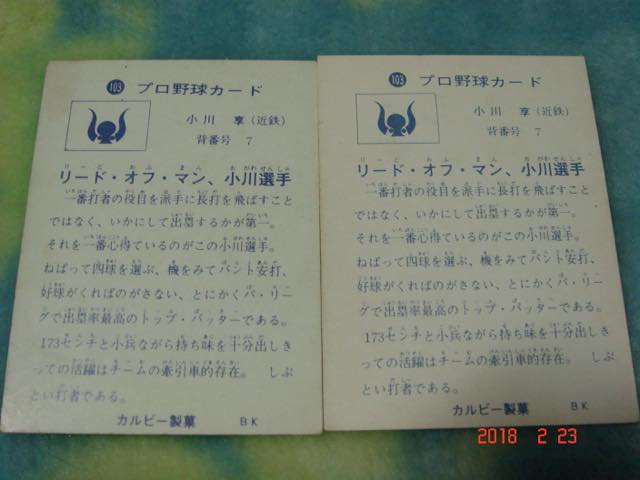 103 プロ野球カード
小川 享（近鉄）
背番号 7
りーど おふ まん おがわせんしゅ
リード・オフ・マン、小川選手
一番打者の役目を派手に長打を飛ばすこと
ではなく、いかにして出塁するかが第一。
それを一番心得ているのがこの小川選手。
ねばって四球を選ぶ、機をみてバント安打、
好球がくればのがさない、とにかくパ・リー
グで出塁率最高のトップ・バッターである。
173センチと小兵ながら持ち味を十分出しき
っての活躍はチームの牽引車的存在。 しぶ
とい打者である。
カルビー製菓 BK
103 プロ野球カード
小川 享（近鉄）
背番号 7
りーど おふ まん おがわせんしゅ
リード・オフ・マン、小川選手
一番打者の役目を派手に長打を飛ばすこと
ではなく、いかにして出塁するかが第一。
それを一番心得ているのがこの小川選手。
ねばって四球を選ぶ、機をみてバント安打、
好球がくればのがさない、とにかくパ・リー
グで出塁率最高のトップ・バッターである。
173センチと小兵ながら持ち味を十分出しき
っての活躍はチームの牽引車的存在。 しぶ
とい打者である。
カルビー製菓 BK
2018 2 23